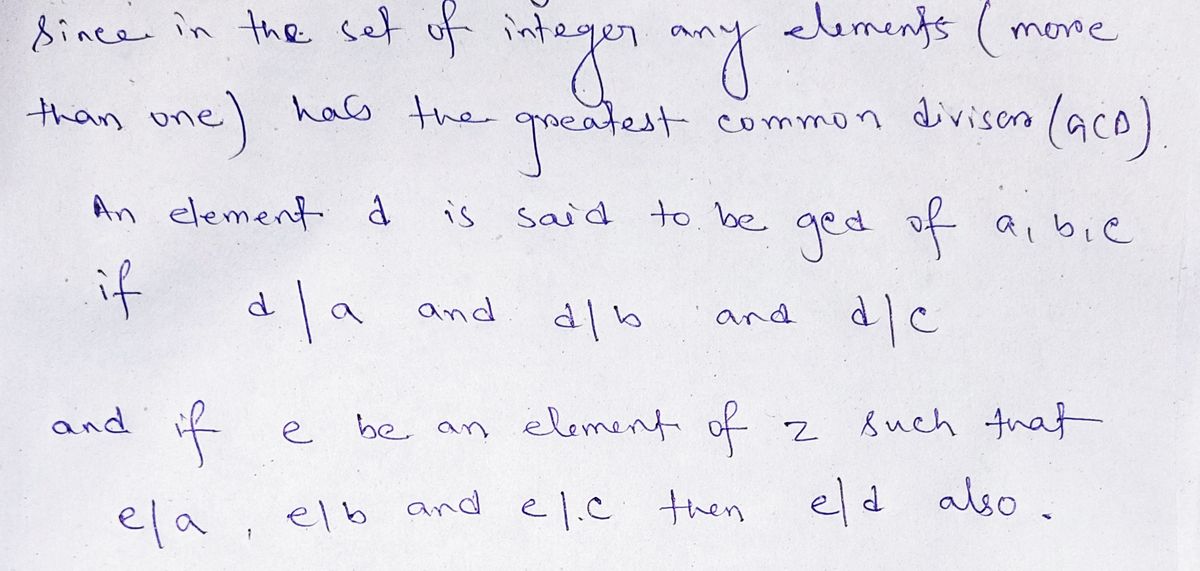 Since in the set of integer any elements (more
than one) has the greatest common divisor (GCD).
An element d is said to be gcd of a, b, c
if d/a and d/b and d/c
and if e be an element of z such that
e/a, e/b and e/c then e/d also.